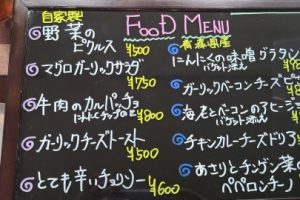 FOOD MENU
自家製
野菜の
ピクルス
¥500
マグロガーリックサラダ
¥750
牛肉のカルパッチョ
にんにくチップのせ
¥800
ガーリックチーズトースト
¥500
とても辛いチョリソー
¥600
青森県産
にんにくの味噌グラタン
バゲット添え
ガーリックベーコンチーズピ
海老とベーコンのアヒージ
バゲット添え
チキンカレーチーズドリア
あさりとチンゲン菜
ペペロンチーノ